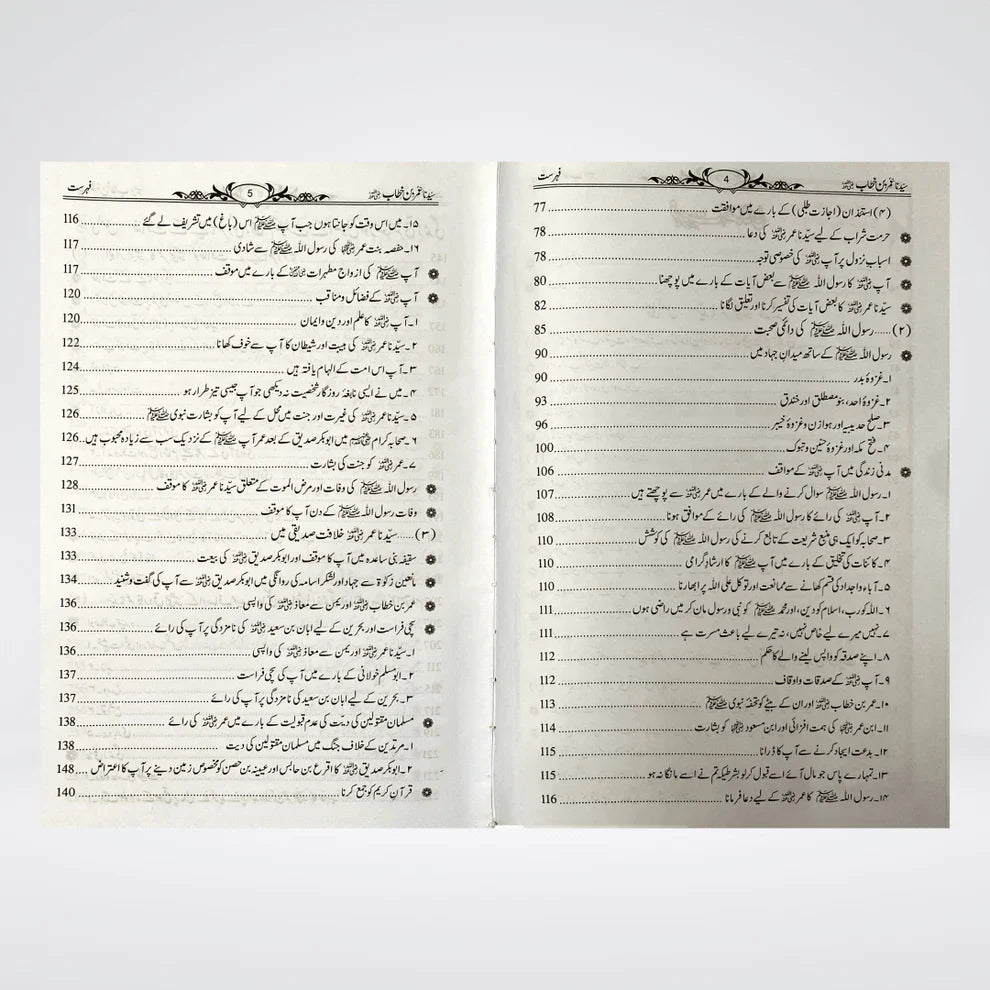 سیّدنا عمر بن خطاب رضی اللہ عنہ 4 فہرست
(۴) استئذان (اجازت طلبی) کے بارے میں موافقت 77
حرمت شراب کے لیے سیّدنا عمر رضی اللہ عنہ کی دعا 78
اسباب نزول پر آپ رضی اللہ عنہ کی خصوصی توجہ 78
آپ رضی اللہ عنہ کا رسول اللہ ﷺ سے بعض آیات کے بارے میں پوچھنا 80
سیّدنا عمر رضی اللہ عنہ کا بعض آیات کی تفسیر کرنا اور تعلیق لگانا 82
(۲)..... رسول اللہ ﷺ کی دائمی صحبت 85
رسول اللہ ﷺ کے ساتھ میدان جہاد میں 90
۱۔ غزوۂ بدر 90
۲۔ غزوۂ احد، بنو مصطلق اور خندق 93
۳۔ صلح حدیبیہ اور ہوازن و غزوۂ خیبر 96
۴۔ فتح مکہ اور غزوۂ حنین و تبوک 100
مدنی زندگی میں آپ رضی اللہ عنہ کے مواقف 106
۱۔ رسول اللہ ﷺ سوال کرنے والے کے بارے میں عمر رضی اللہ عنہ سے پوچھتے ہیں 107
۲۔ آپ رضی اللہ عنہ کی رائے کا رسول اللہ ﷺ کی رائے کے موافق ہونا 108
۳۔ صحابہ کو ایک ہی منبع شریعت کے تابع کرنے کی رسول اللہ ﷺ کی کوشش 110
۴۔ کائنات کی تخلیق کے بارے میں آپ ﷺ کا ارشاد گرامی 110
۵۔ آباء و اجداد کی قسم کھانے سے ممانعت اور توکل علی اللہ پر ابھارنا 110
۶۔ اللہ کو رب، اسلام کو دین، اور محمد ﷺ کو نبی و رسول مان کر میں راضی ہوں 111
۷۔ نہیں میرے لیے خاص نہیں، نہ تیرے لیے باعث مسرت ہے 111
۸۔ اپنے صدقہ کو واپس لینے والے کا حکم 112
۹۔ آپ رضی اللہ عنہ کے صدقات و اوقاف 112
۱۰۔ عمر بن خطاب رضی اللہ عنہ اور ان کے بیٹے کو تحفۂ نبوی ﷺ 113
۱۱۔ ابن عمر رضی اللہ عنہما کی ہمت افزائی اور ابن مسعود رضی اللہ عنہ کو بشارت 114
۱۲۔ بدعت ایجاد کرنے سے آپ کا ڈرانا 115
۱۳۔ تمہارے پاس جو مال آئے اسے قبول کر لو بشرطیکہ تم نے اسے مانگا نہ ہو 115
۱۴۔ رسول اللہ ﷺ کا عمر رضی اللہ عنہ کے لیے دعا فرمانا 116
سیّدنا عمر بن خطاب رضی اللہ عنہ 5 فہرست
۱۵۔ میں اس وقت کو جانتا ہوں جب آپ ﷺ اس (باغ) میں تشریف لے گئے 116
۱۶۔ حفصہ بنت عمر رضی اللہ عنہما کی رسول اللہ ﷺ سے شادی 117
آپ ﷺ کی ازواج مطہرات رضی اللہ عنہن کے بارے میں موقف 117
آپ رضی اللہ عنہ کے فضائل و مناقب 120
۱۔ آپ رضی اللہ عنہ کا علم اور دین و ایمان 120
۲۔ سیّدنا عمر رضی اللہ عنہ کی ہیبت اور شیطان کا آپ سے خوف کھانا 122
۳۔ آپ اس امت کے الہام یافتہ ہیں 124
۴۔ میں نے ایسی نابغۂ روزگار شخصیت نہ دیکھی جو آپ جیسی تیز طرار ہو 125
۵۔ سیّدنا عمر رضی اللہ عنہ کی غیرت اور جنت میں محل کے لیے آپ کو بشارت نبوی ﷺ 126
۶۔ صحابہ کرام رضی اللہ عنہم میں ابوبکر صدیق کے بعد عمر آپ ﷺ کے نزدیک سب سے زیادہ محبوب ہیں 126
۷۔ عمر رضی اللہ عنہ کو جنت کی بشارت 127
رسول اللہ ﷺ کی وفات اور مرض الموت کے متعلق سیّدنا عمر رضی اللہ عنہ کا موقف 128
وفات رسول اللہ ﷺ کے دن آپ کا موقف 131
(۳)..... سیّدنا عمر رضی اللہ عنہ خلافت صدیقی میں 133
سقیفہ بنی ساعدہ میں آپ کا موقف اور ابوبکر صدیق رضی اللہ عنہ کی بیعت 133
مانعین زکوٰۃ سے جہاد اور لشکر اسامہ کی روانگی میں ابوبکر صدیق رضی اللہ عنہ سے آپ کی گفت و شنید 134
عمر بن خطاب رضی اللہ عنہ اور یمن سے معاذ رضی اللہ عنہ کی واپسی 136
سچی فراست اور بحرین کے لیے ابان بن سعید رضی اللہ عنہ کی نامزدگی پر آپ کی رائے 136
۱۔ سیّدنا عمر رضی اللہ عنہ اور یمن سے معاذ رضی اللہ عنہ کی واپسی 136
۲۔ ابو مسلم خولانی کے بارے میں آپ کی سچی فراست 137
۳۔ بحرین کے لیے ابان بن سعید کی نامزدگی پر آپ کی رائے 137
مسلمان مقتولین کی دیت کی عدم قبولیت کے بارے میں عمر رضی اللہ عنہ کی رائے 138
۱۔ مرتدین کے خلاف جنگ میں مسلمان مقتولین کی دیت 138
۲۔ ابوبکر صدیق رضی اللہ عنہ کا اقرع بن حابس اور عیینہ بن حصن کو مخصوص زمین دینے پر آپ کا اعتراض 148
قرآن کریم کو جمع کرنا 140